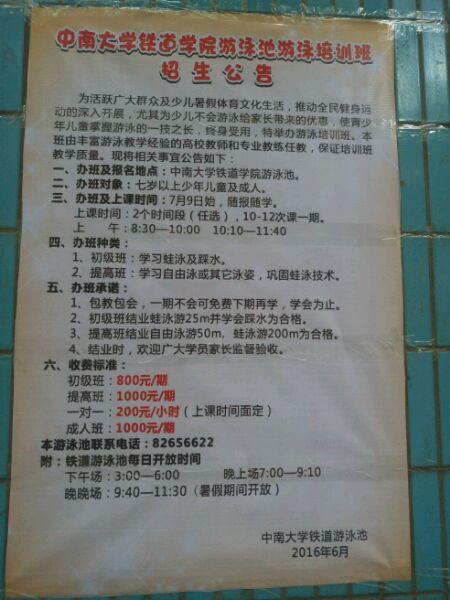 中南大学铁道学院游泳池游泳培训班
招生公告
为活跃广大群众及少儿暑假体育文化生活，推动全民健身运
动的深入开展，尤其为少儿不会游泳给家长带来的优惠，使青少
年儿童掌握游泳的一技之长，终身受用，特举办游泳培训班。本
班由丰富游泳教学经验的高校教师和专业教练任教，保证培训班
教学质量。现将相关事宜公告如下：
一、办班及报名地点：中南大学铁道学院游泳池。
二、办班对象：七岁以上少年儿童及成人。
三、办班及上课时间：7月9日始，随报随学。
上课时间：2个时间段（任选），10-12次课一期。
上 午：8:30—10:00 10:10—11:40
四、办班种类：
1、初级班：学习蛙泳及踩水。
2、提高班：学习自由泳或其它泳姿，巩固蛙泳技术。
五、办班承诺：
1、包教包会，一期不会可免费下期再学，学会为止。
2、初级班结业蛙泳游25m并学会踩水为合格。
3、提高班结业自由泳游50m，蛙泳游200m为合格。
4、结业时，欢迎广大学员家长监督验收。
六、收费标准：
初级班：800元/期
提高班：1000元/期
一对一：200元/小时（上课时间面定）
成人班：1000元/期
本游泳池联系电话：82656622
附：铁道游泳池每日开放时间
下午场：3:00—6:00 晚上场7:00—9:10
晚晚场：9:40—11:30（暑假期间开放）
中南大学铁道游泳池
2016年6月